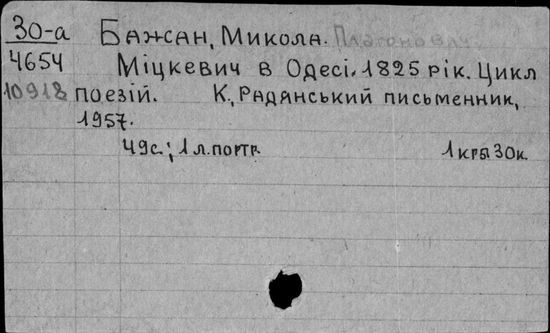 30-а Бажан, Микола. Платонович.
4654 Міцкевич в Одесі. 1825 рік. Цикл
10918 поезій. К., Радянський письменник,
1957.
49с.; 1 л.портр. 1крб 30к.